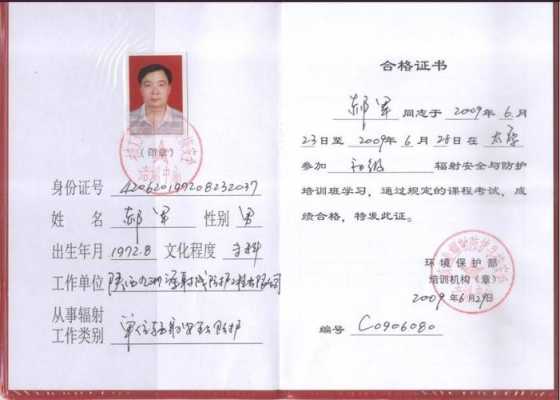 (印章)
身份证号 420620197208232037
姓名 郝军 性别 男
出生年月 1972.8 文化程度 本科
工作单位
从事辐射
工作类别
合格证书
郝军 同志于 2009年 6月
23日至 2009年 6月 28日在 太原
参加 初级 辐射安全与防护
培训班学习，通过规定的课程考试，成
绩合格，特发此证。
环境保护部
培训机构（章）
2009年6月29日
编号 C0906080